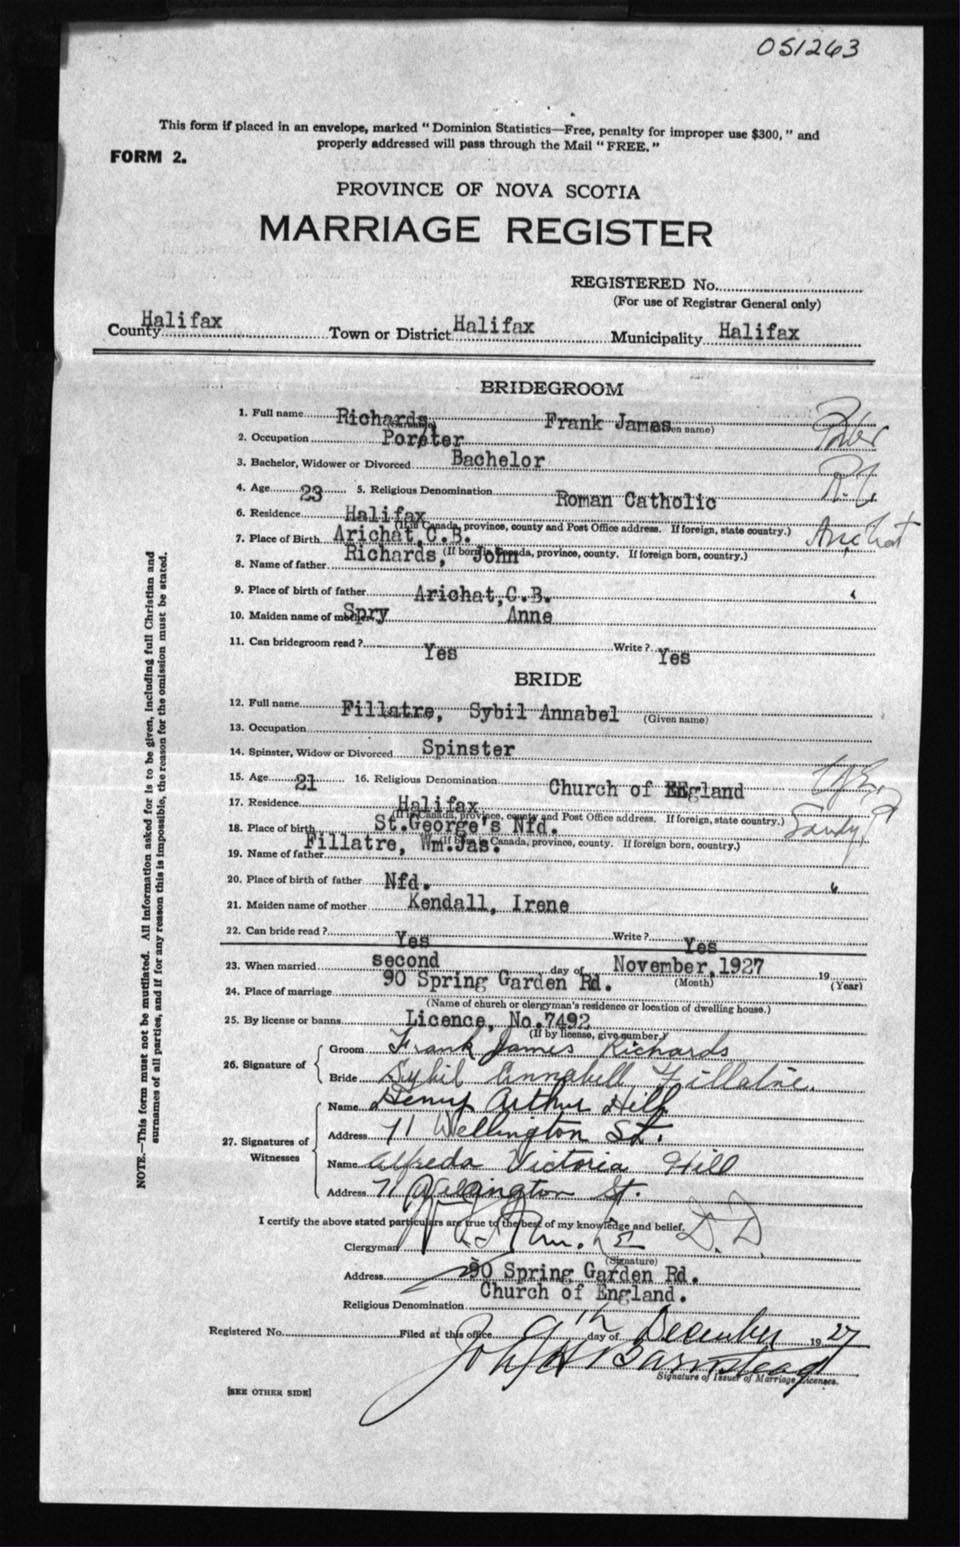 OS1263
This form if placed in an envelope, marked "Dominion Statistics—Free, penalty for improper use $300," and
properly addressed will pass through the Mail "FREE."
FORM 2.
PROVINCE OF NOVA SCOTIA
MARRIAGE REGISTER
REGISTERED No.
(For use of Registrar General only)
County Halifax Town or District Halifax Municipality Halifax
BRIDEGROOM
1. Full name Richards Frank James
2. Occupation Porster Porter
3. Bachelor, Widower or Divorced Bachelor
4. Age 23 5. Religious Denomination Roman Catholic R.C.
6. Residence Halifax
(If in Canada, province, county and Post Office address. If foreign, state country.) Arichat
7. Place of Birth Arichat,C.B.
(If born in Canada, province, county. If foreign born, country.)
8. Name of father Richards, John
9. Place of birth of father Arichat,C.B.
10. Maiden name of mother Spry Anne
11. Can bridegroom read? Yes Write? Yes
BRIDE
12. Full name Fillatre, Sybil Annabel (Given name)
13. Occupation
14. Spinster, Widow or Divorced Spinster
15. Age 21 16. Religious Denomination Church of England
17. Residence Halifax
(If in Canada, province, county and Post Office address. If foreign, state country.)
18. Place of birth St.George's Nfd.
(If born in Canada, province, county. If foreign born, country.)
19. Name of father Fillatre, Wm.Jas.
20. Place of birth of father Nfd.
21. Maiden name of mother Kendall, Irene
22. Can bride read? Yes Write? Yes
23. When married second day of November,1927 19
(Month) (Year)
24. Place of marriage 90 Spring Garden Rd.
(Name of church or clergyman's residence or location of dwelling house.)
25. By license or banns Licence, No.7492
(If by license, give number.)
26. Signature of
Groom Frank James Richards
Bride Sybil Annabell Fillatre.
27. Signatures of Witnesses
Name Henry Arthur Hill
Address 71 Wellington St.
Name Alfreda Victoria Hill
Address 71 Wellington St.
I certify the above stated particulars are true to the best of my knowledge and belief.
Clergyman D.D.
(Signature)
Address 90 Spring Garden Rd.
Religious Denomination Church of England.
Registered No. Filed at this office 9th day of December 1927
John H Barnstead
Signature of Issuer of Marriage Licenses.
[SEE OTHER SIDE]
NOTE.—This form must not be mutilated. All information asked for is to be given, including full Christian and
surnames of all parties, and if for any reason this is impossible, the reason for the omission must be stated.